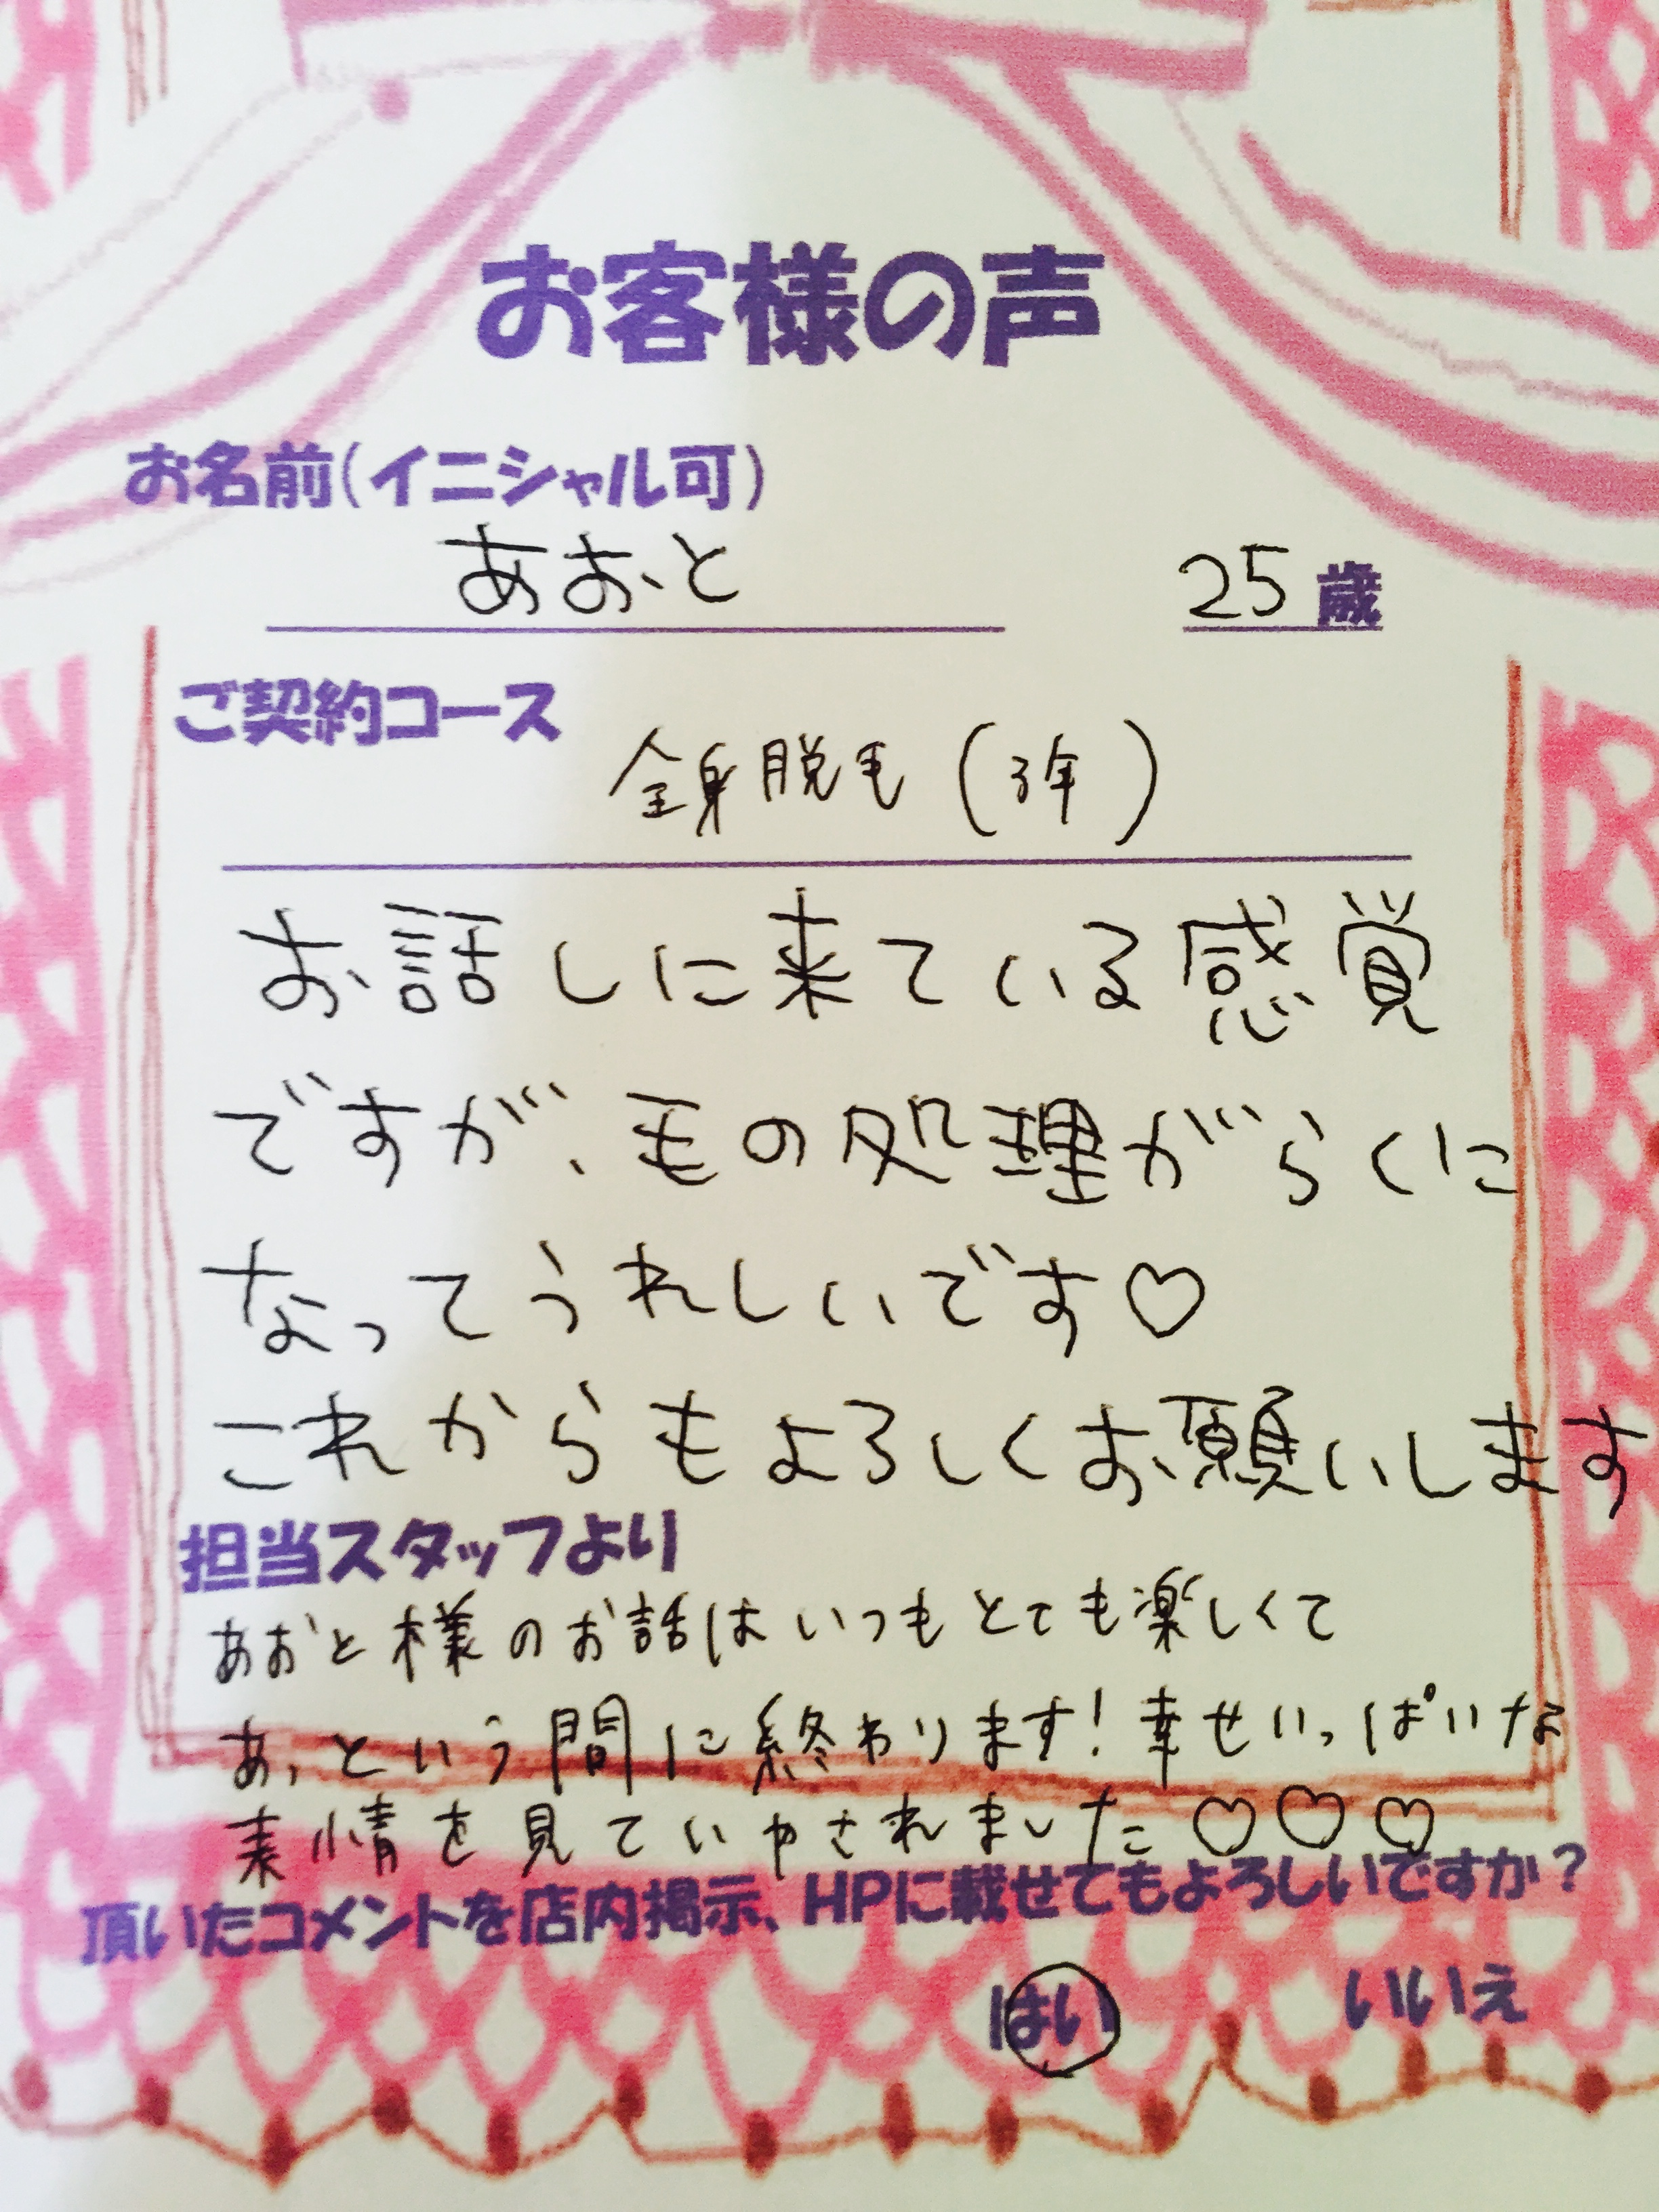 お客様の声
お名前(イニシャル可)
あおと 25歳
ご契約コース
全身脱毛(3年)
お話しに来ている感覚
ですが、毛の処理がらくに
なってうれしいです♡
これからもよろしくお願いします
担当スタッフより
あおと様のお話はいつもとても楽しくて
あっという間に終わります!幸せいっぱいな
表情を見ていやされました♡♡♡
頂いたコメントを店内掲示、HPに載せてもよろしいですか?
はい いいえ